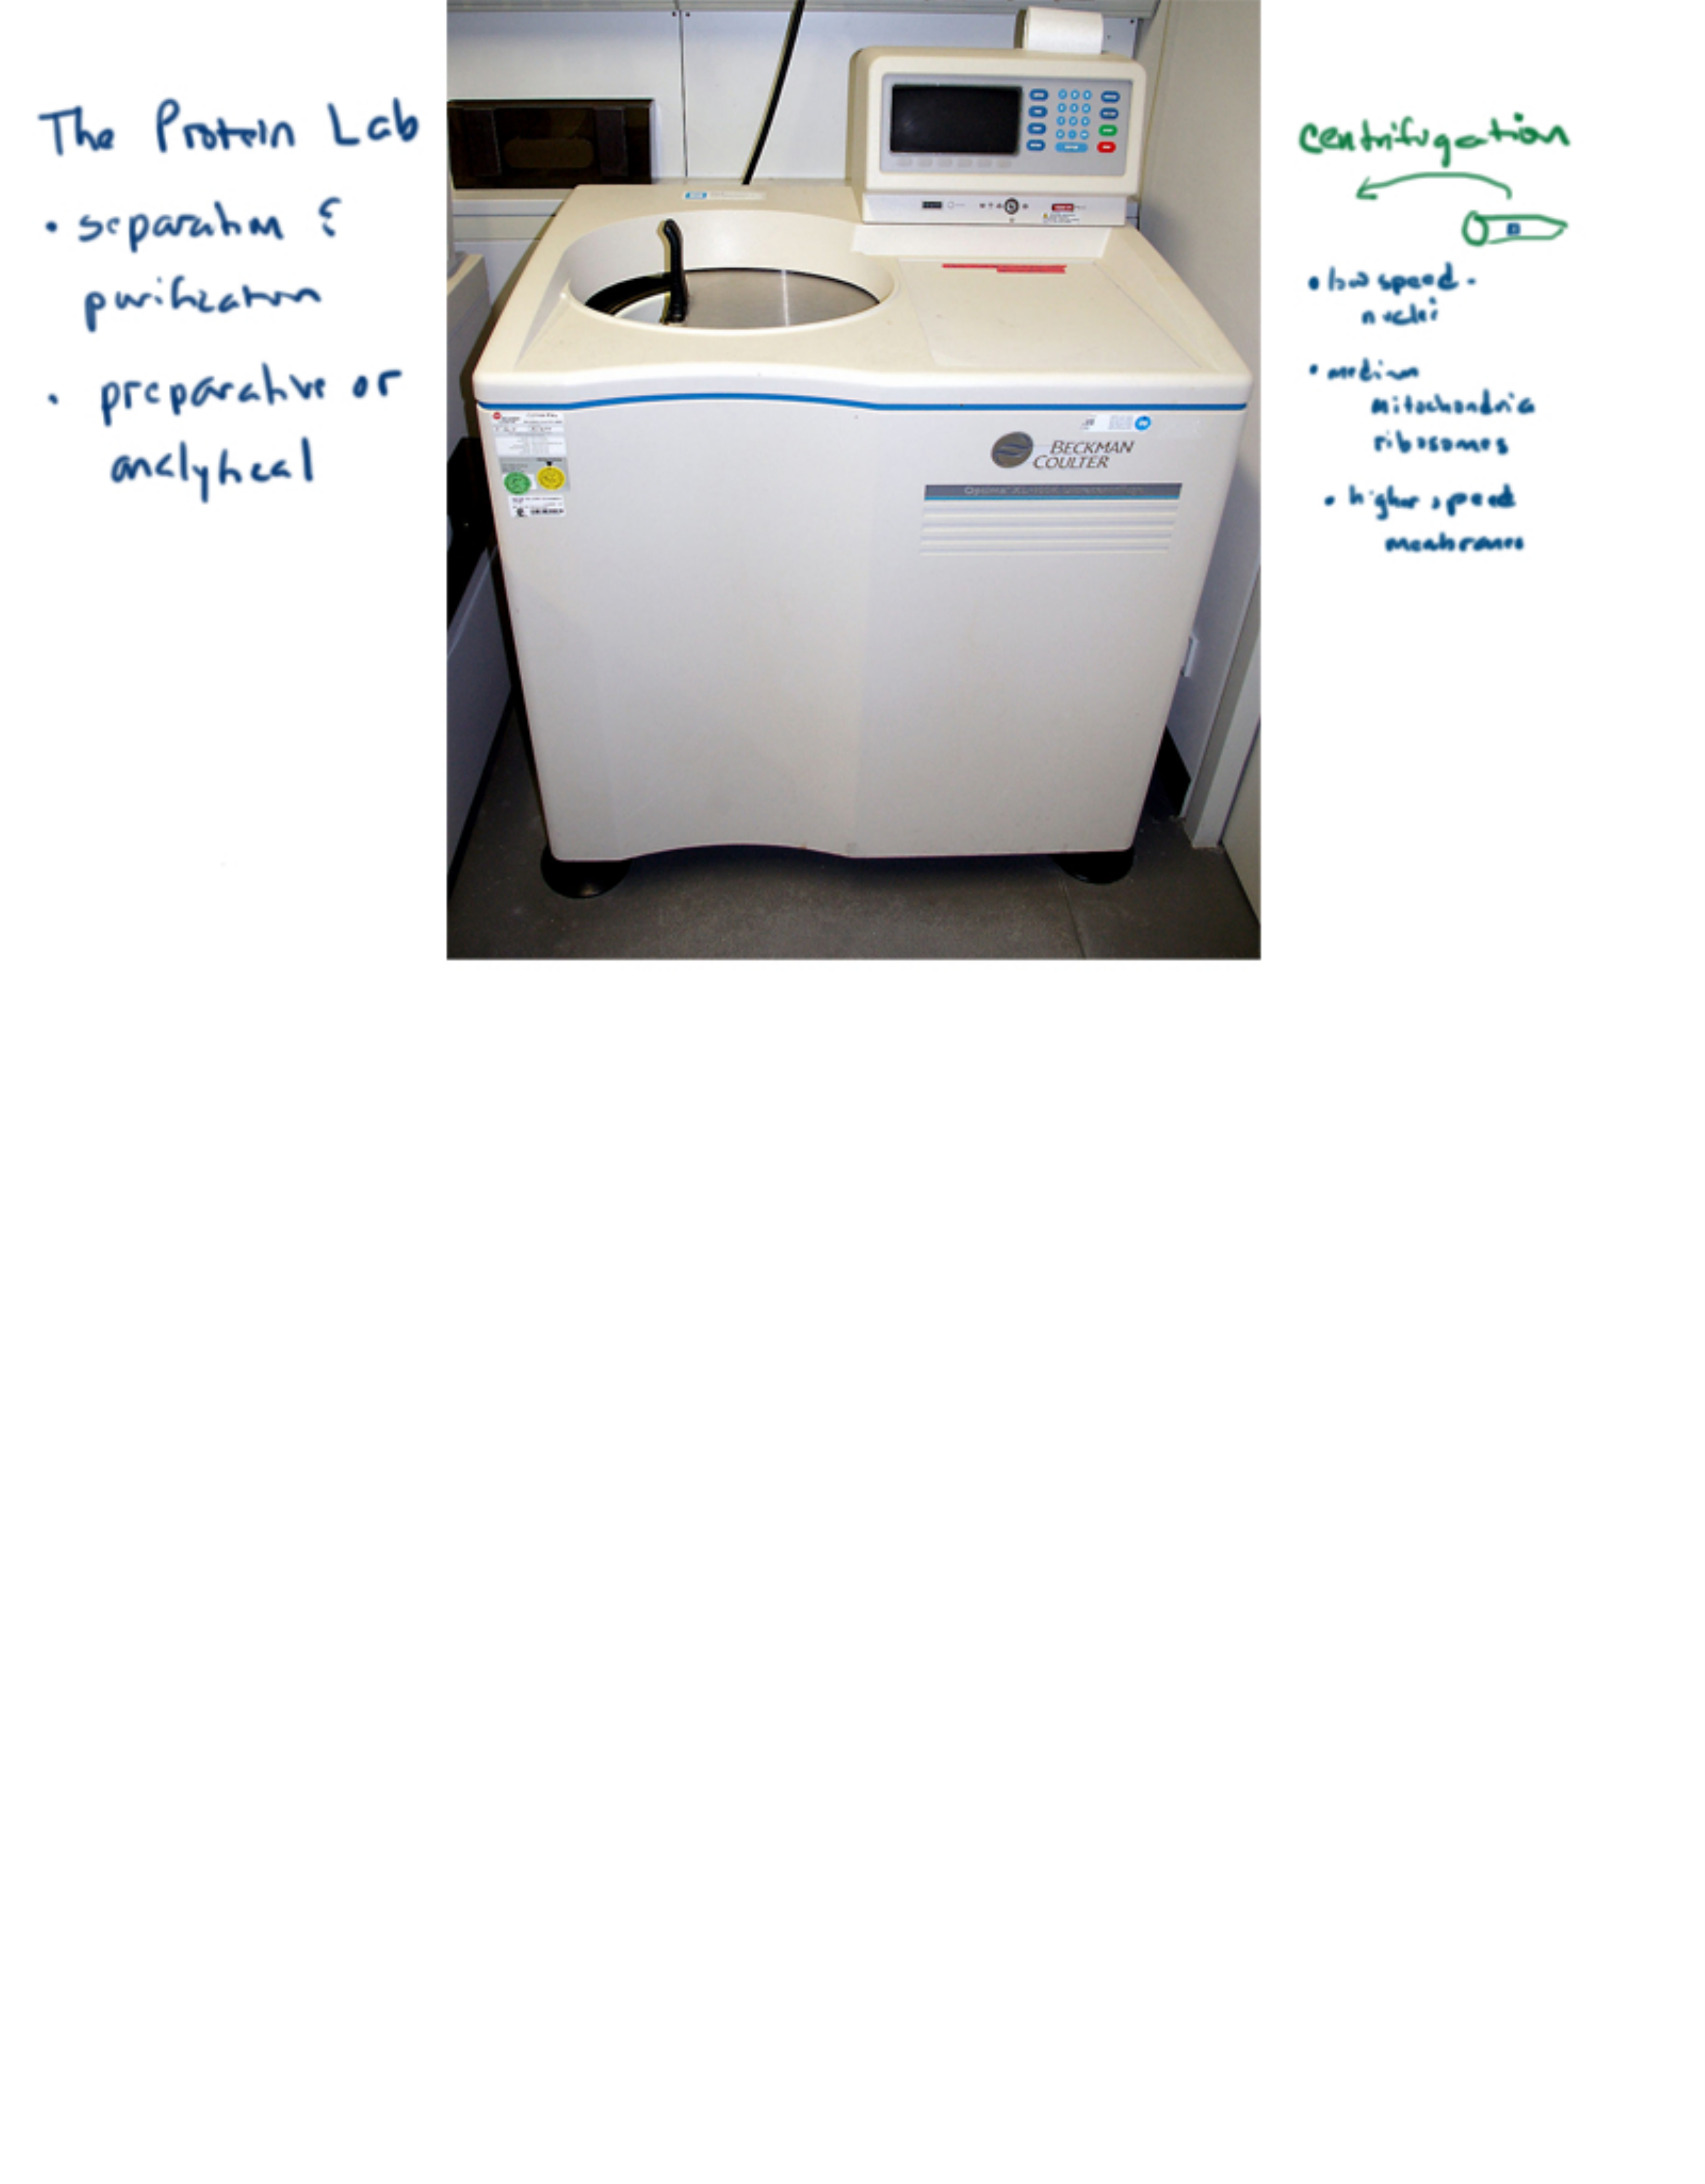 The Protein Lab
• separation &
purification
• preparative or
analytical
BECKMAN
COULTER
centrifugation
• low speed -
nuclei
• medium
mitochondria
ribosomes
• higher speed
membranes